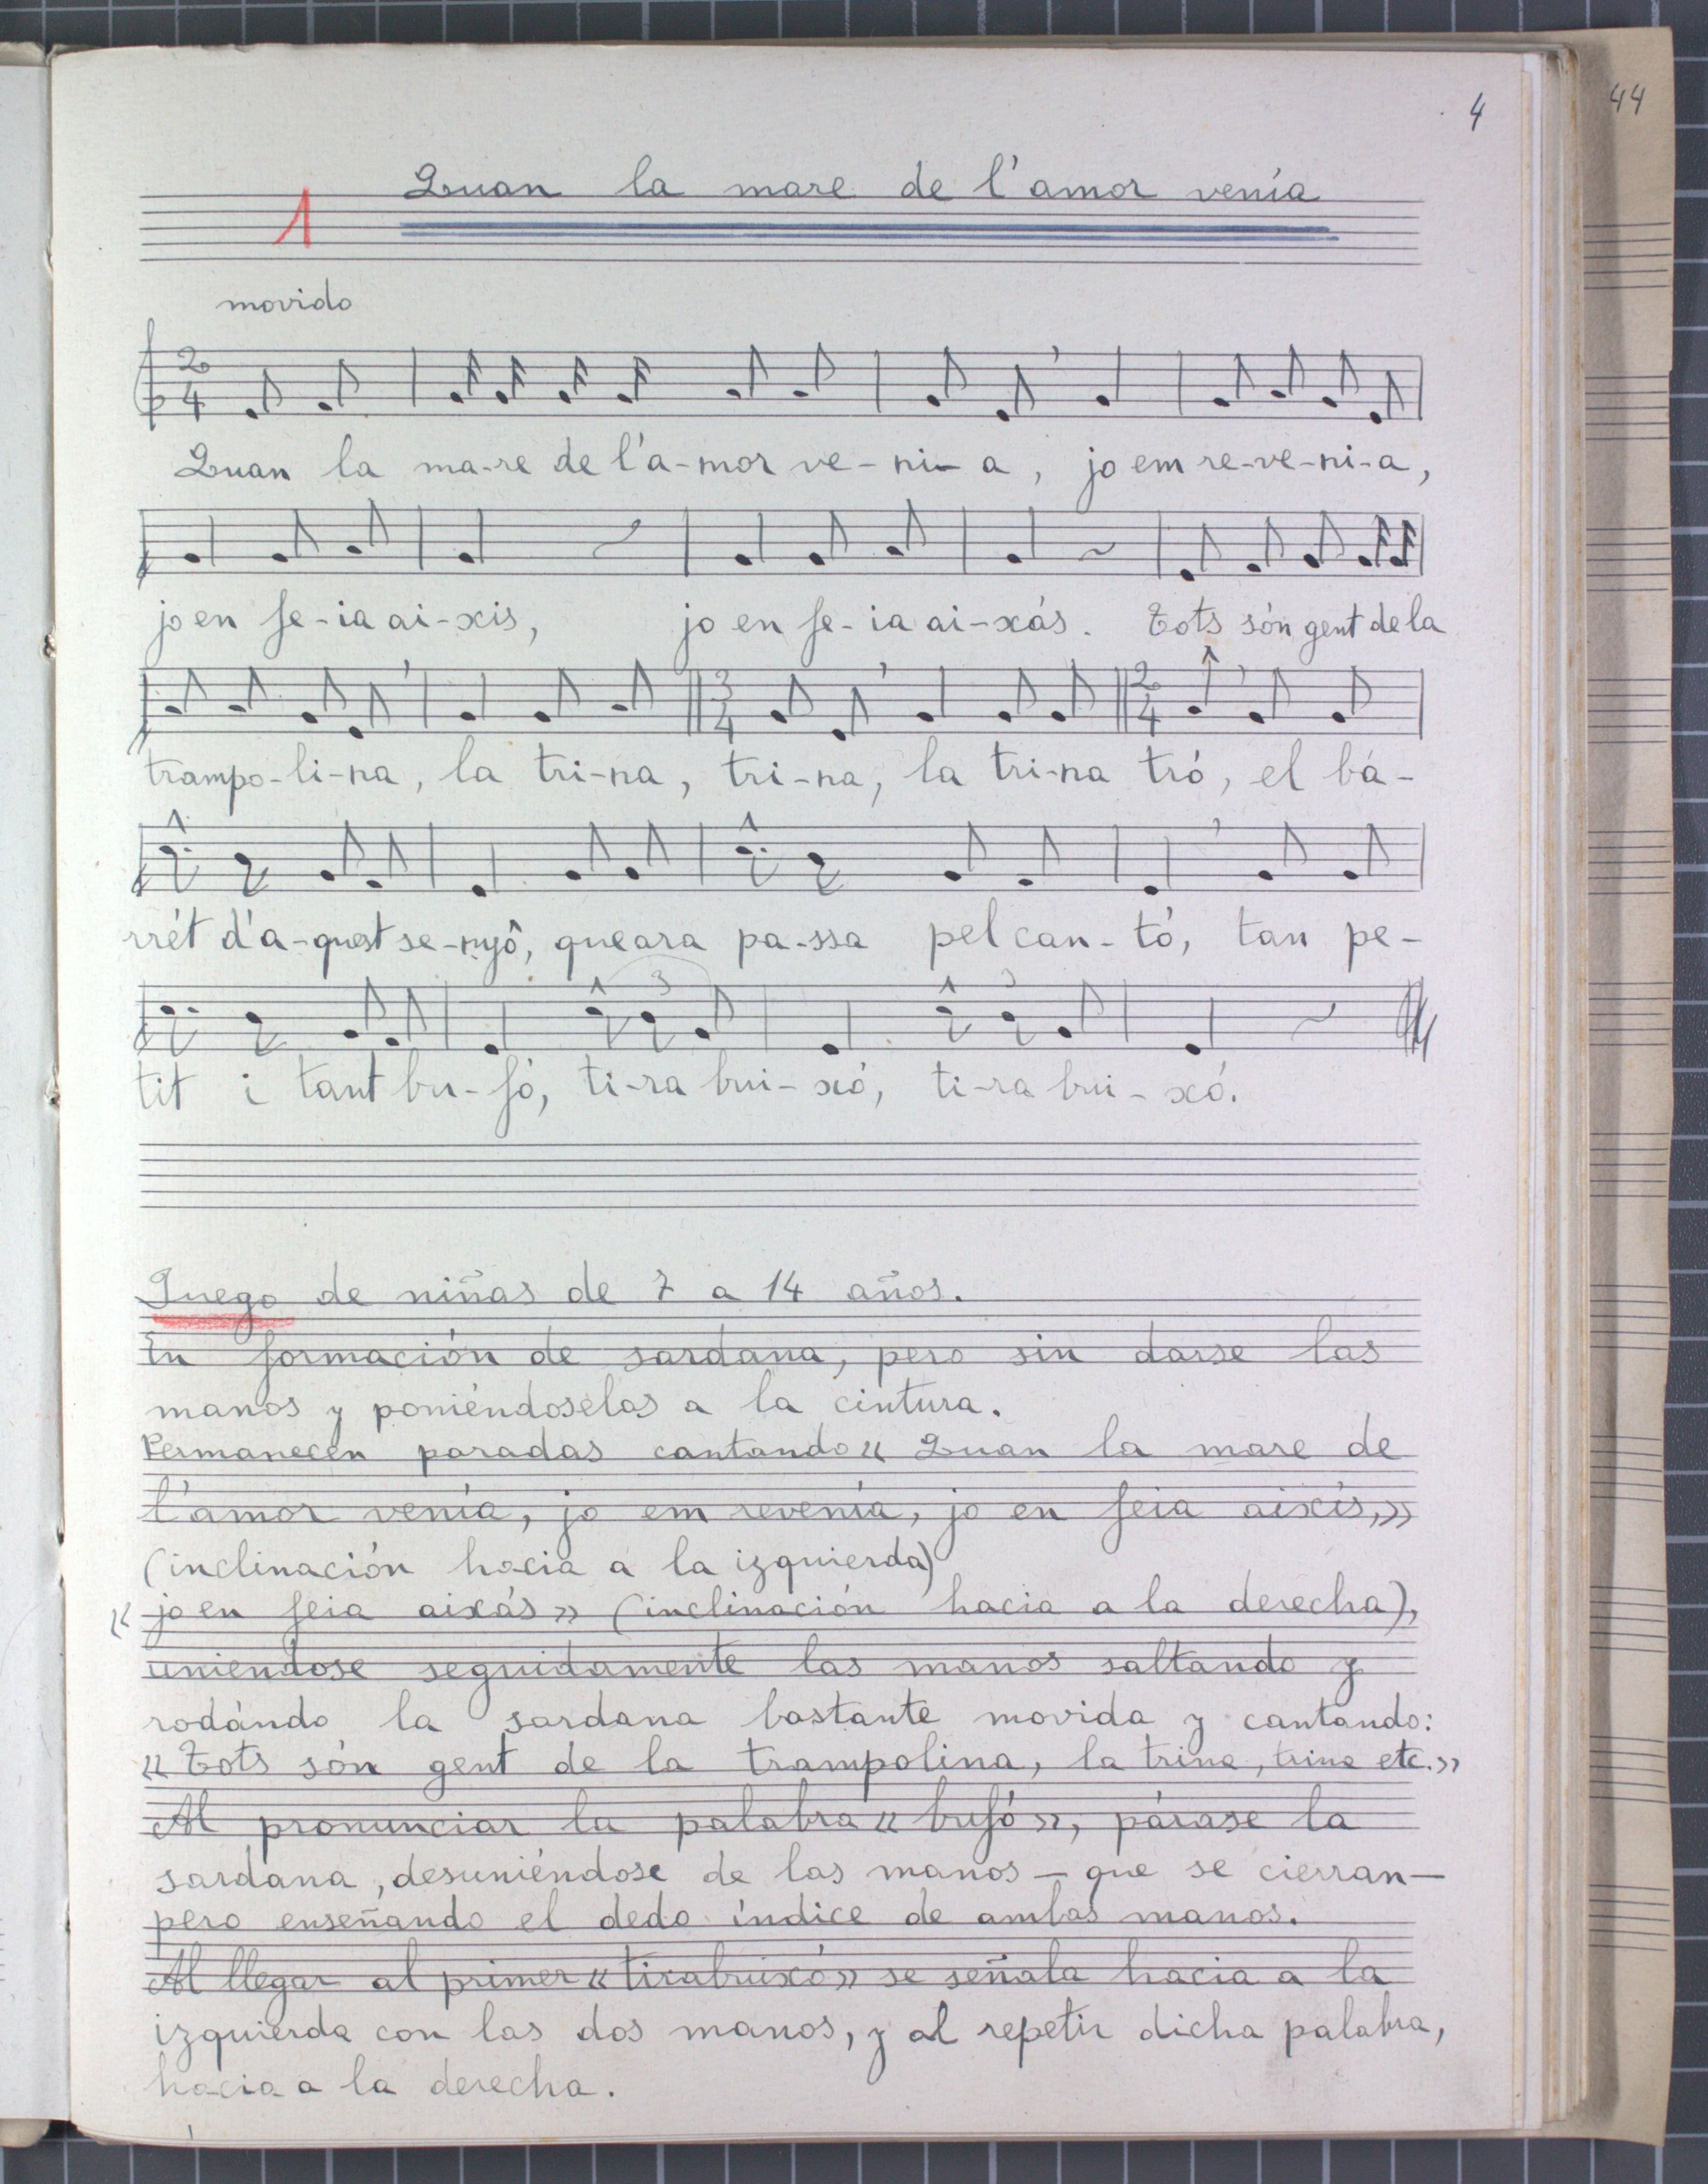 4
44
1 Quan la mare de l'amor venía
movido
2 4
Quan la ma-re de l'a-mor ve-ni-a, jo em re-ve-ni-a,
jo en fe-ia ai-xis, jo en fe-ia ai-xás. Tots són gent de la
3 4 2 4
trampo-li-na, la tri-na, tri-na, la tri-na tró, el bá-
rrét d'a-quest se-nyô, que ara pa-ssa pel can-tó, tan pe-
3 3
tit i tant bu-fó, ti-ra bui-xó, ti-ra bui-xó.
Juego de niñas de 7 a 14 años.
En formación de sardana, pero sin darse las
manos y poniéndoselas a la cintura.
Permanecen paradas cantando « Quan la mare de
l'amor venía, jo em revenía, jo en feia aixís,»
(inclinación hacia a la izquierda)
« jo en feia aixás» (inclinación hacia a la derecha),
uniéndose seguidamente las manos saltando y
rodándo la sardana bastante movida y cantando:
« Tots són gent de la trampolina, la trina, trina etc.»
Al pronunciar la palabra « bufó», párase la
sardana, desuniéndose de las manos - que se cierran -
pero enseñando el dedo índice de ambas manos.
Al llegar al primer « tirabuixó» se señala hacia a la
izquierda con las dos manos, y al repetir dicha palabra,
hacia a la derecha.